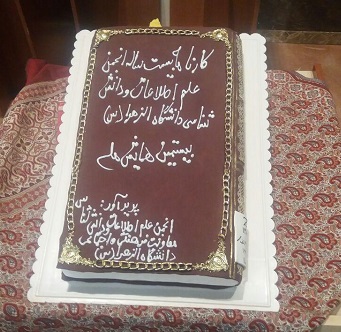 کارنامه بیست ساله انجمن
علم اطلاعات و دانش
شناسی دانشگاه الزهرا (س)
بیستمین همایش ملی
پدیدآور:
انجمن علم اطلاعات و دانش شناسی
معاونت فرهنگی و اجتماعی
دانشگاه الزهرا (س)